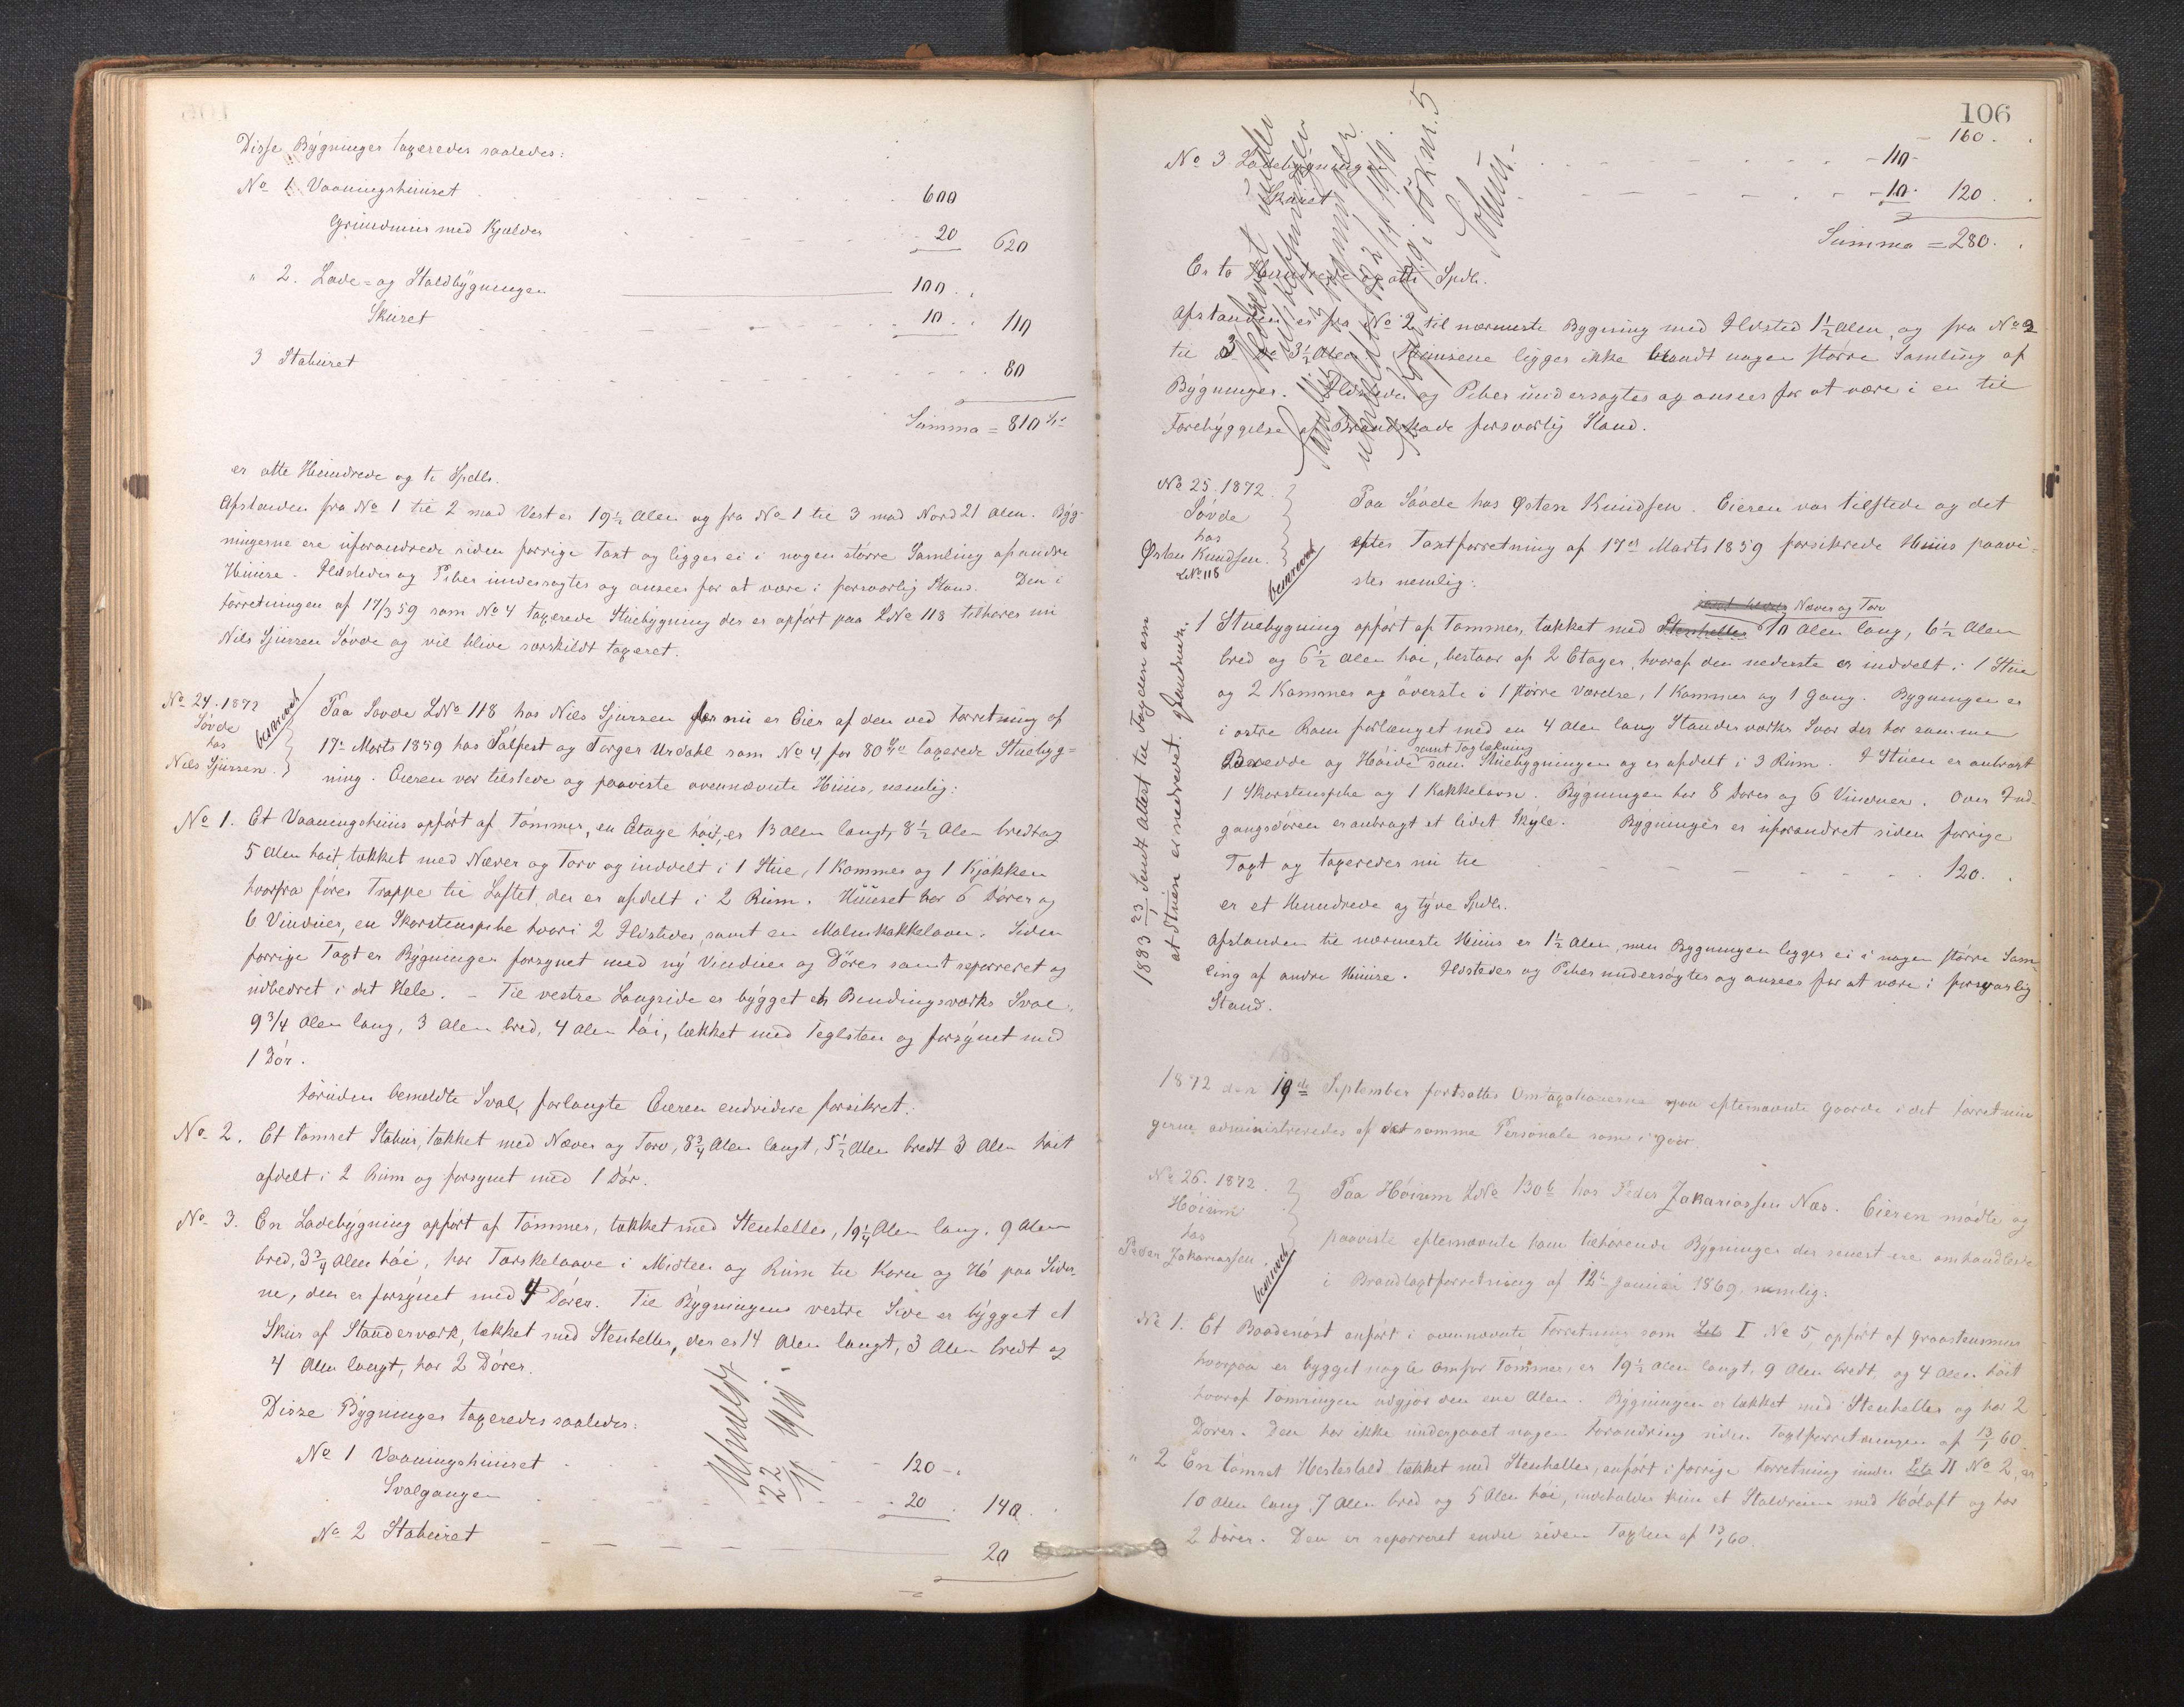 Disse Bygninger taxeredes saaledes:
No 1 Vaaningshuuset 600
Grundmuur med Kjælder 20 620
" 2. Lade- og Staldbygningen 100
Skuret 10 110
3 Staburet 80
Summa = 810
er otte Hundrede og ti Spdlr.
Afstanden fra No 1 til 2 mod Vest er 19½ Alen og fra No 1 til 3 mod Nord 21 Alen. Byg-
ningerne ere uforandrede siden forrige Taxt og ligger ei i nogen større Samling af andre
Huuse. Ildsteder og Piber undersøgtes og ansees for at være i forsvarlig Stand. Den i
Forretningen af 17/3 59 som No 4 taxerede Stuebygning der er opført paa LNo 118 tilhører nu
Nils Sjursen Søvde og vil blive særskildt taxeret.
No 24. 1872
Søvde
hos
Nils Sjursen.
beskrevet
Paa Søvde LNo 118 hos Nils Sjursen der nu er Eier af den ved Forretning af
17de Marts 1859 hos Salfest og Torger Urdahl som No 4 for 80 taxerede Stuebyg-
ning. Eieren var tilstede og paaviste ovennævnte Huus, nemlig:
No 1. Et Vaaningshuus opført af Tømmer, en Etage høit, er 13 Alen langt, 8½ Alen bredt og
5 Alen høit, tækket med Næver og Torv og inddelt i 1 Stue, 1 Kammer og 1 Kjøkken
hvorfra fører Trappe til Loftet, der er afdelt i 2 Rum. Huuset har 6 Dører og
6 Vinduer, en Skorstenspibe hvori 2 Ildsteder, samt en Malmkakkelovn. Siden
forrige Taxt er Bygningen forsynet med ny Vinduer og Dører samt reparreret og
udbedret i det Hele. – Til vestre Langside er bygget en Bendingsværks Sval,
9 3/4 Alen lang, 3 Alen bred, 4 Alen høi, tækket med Teglsten og forsynet med
1 Dør.
Foruden bemeldte Sval, forlangte Eieren endvidere forsikret:
No 2. Et tømret Stabur, tækket med Næver og Torv, 8 3/4 Alen langt, 5½ Alen bredt 3 Alen høit
afdelt i 2 Rum og forsynet med 1 Dør.
No 3. En Ladebygning opført af Tømmer, tækket med Stenheller, 19¼ Alen lang, 9 Alen
bred, 3 3/4 Alen høi, har Tærskelaave i Midten og Rum til Korn og Hø paa Sider-
ne, den er forsynet med 4 Dører. Til Bygningens vestre Side er bygget et
Skur af Standerværk, tækket med Stenheller, der er 14 Alen langt, 3 Alen bredt og
4 Alen langt, har 2 Dører.
Disse Bygninger taxeredes saaledes:
No 1 Vaaningshuuset 120
Svalgangen 20 140
No 2 Staburet 20
Udmeldt
22/11 1910
106
160.
No 3 Ladebygningen 110
Skuret 10 120
Summa = 280.
Er to Hundrede og otti Spdlr.
Afstanden er fra No 2 til nærmeste Bygning med Ildsted 1½ Alen, og fra No 2
til 3 3½ Alen. Huusene ligger ikke blandt nogen større Samling af
Bygninger. Ildsteder og Piber undersøgtes og ansees for at være i en til
Forebyggelse af Brandskade forsvarlig Stand.
No 25. 1872.
Søvde
hos
Østen Knudsen.
LNo 118
beskrevet
Paa Søvde hos Østen Knudsen. Eieren var tilstede og det
efter Taxtforretning af 17de Marts 1859 forsikrede Huus paavi-
stes nemlig:
Næver og Torv
1 Stuebygning opført af Tømmer, tækket med Stenheller 10 Alen lang, 6½ Alen
bred og 6½ Alen høi, bestaar af 2 Etager, hvoraf den nederste er inddelt i 1 Stue
og 2 Kammer og øverste i 1 større Værelse, 1 Kammer og 1 Gang. Bygningen er
i østre Ram forlænget med en 4 Alen lang Standerværks Sval der har samme
samt Taglækning
Bredde og Høide som Stuebygningen og er afdelt i 3 Rum. I Stuen er anbragt
1 Skorstenspibe og 1 Kakkelovn. Bygningen har 8 Dører og 6 Vinduer. Over Ind-
gangsdøren er anbragt et lidet Skyle. Bygningen er uforandret siden forrige
Taxt og taxeredes nu til 120.
er et Hundrede og tyve Spdlr.
Afstanden til nærmeste Huus er 1½ Alen, men Bygningen ligger ei i nogen større Sam-
ling af andre Huuse. Ildsteder og Piber undersøgtes og ansees for at være i forsvarlig
Stand.
1883 23/1 sendt Attest til Fogden om
at Stuen er nedrevet.
1872 den 19de September fortsattes Omtaxationerne paa efternævnte Gaarde i det Forretnin-
gerne administreredes af det samme Personale som i gaar.
No 26. 1872.
Høium
hos
Peder Zakariassen
beskrevet
Paa Høium LNo 130b hos Peder Zakariassen Næs. Eieren mødte og
paaviste efternævnte ham tilhørende Bygninger der senest ere omhandlede
i Brandtaxtforretning af 12te Januar 1869, nemlig:
No 1. Et Baadenøst anført i ovennævnte Forretning som Lit I No 5, opført af Graastensmur
hvorpaa er bygget nogle Omfar Tømmer, er 19½ Alen langt, 9 Alen bredt, og 4 Alen høit
hvoraf Tømringen udgjør den ene Alen. Bygningen er tækket med Stenheller og har 2
Dører. Den har ikke undergaaet nogen Forandring siden Taxtforretningen af 13/1 60.
" 2 En tømret Hestestald tækket med Stenheller, anført i forrige Forretning under Lit II No 2, er
10 Alen lang 7 Alen bred og 5 Alen høi, indeholder kun et Staldrum med Høloft og har
2 Dører. Den er reparreret endel siden Taxten af 13/1 60.